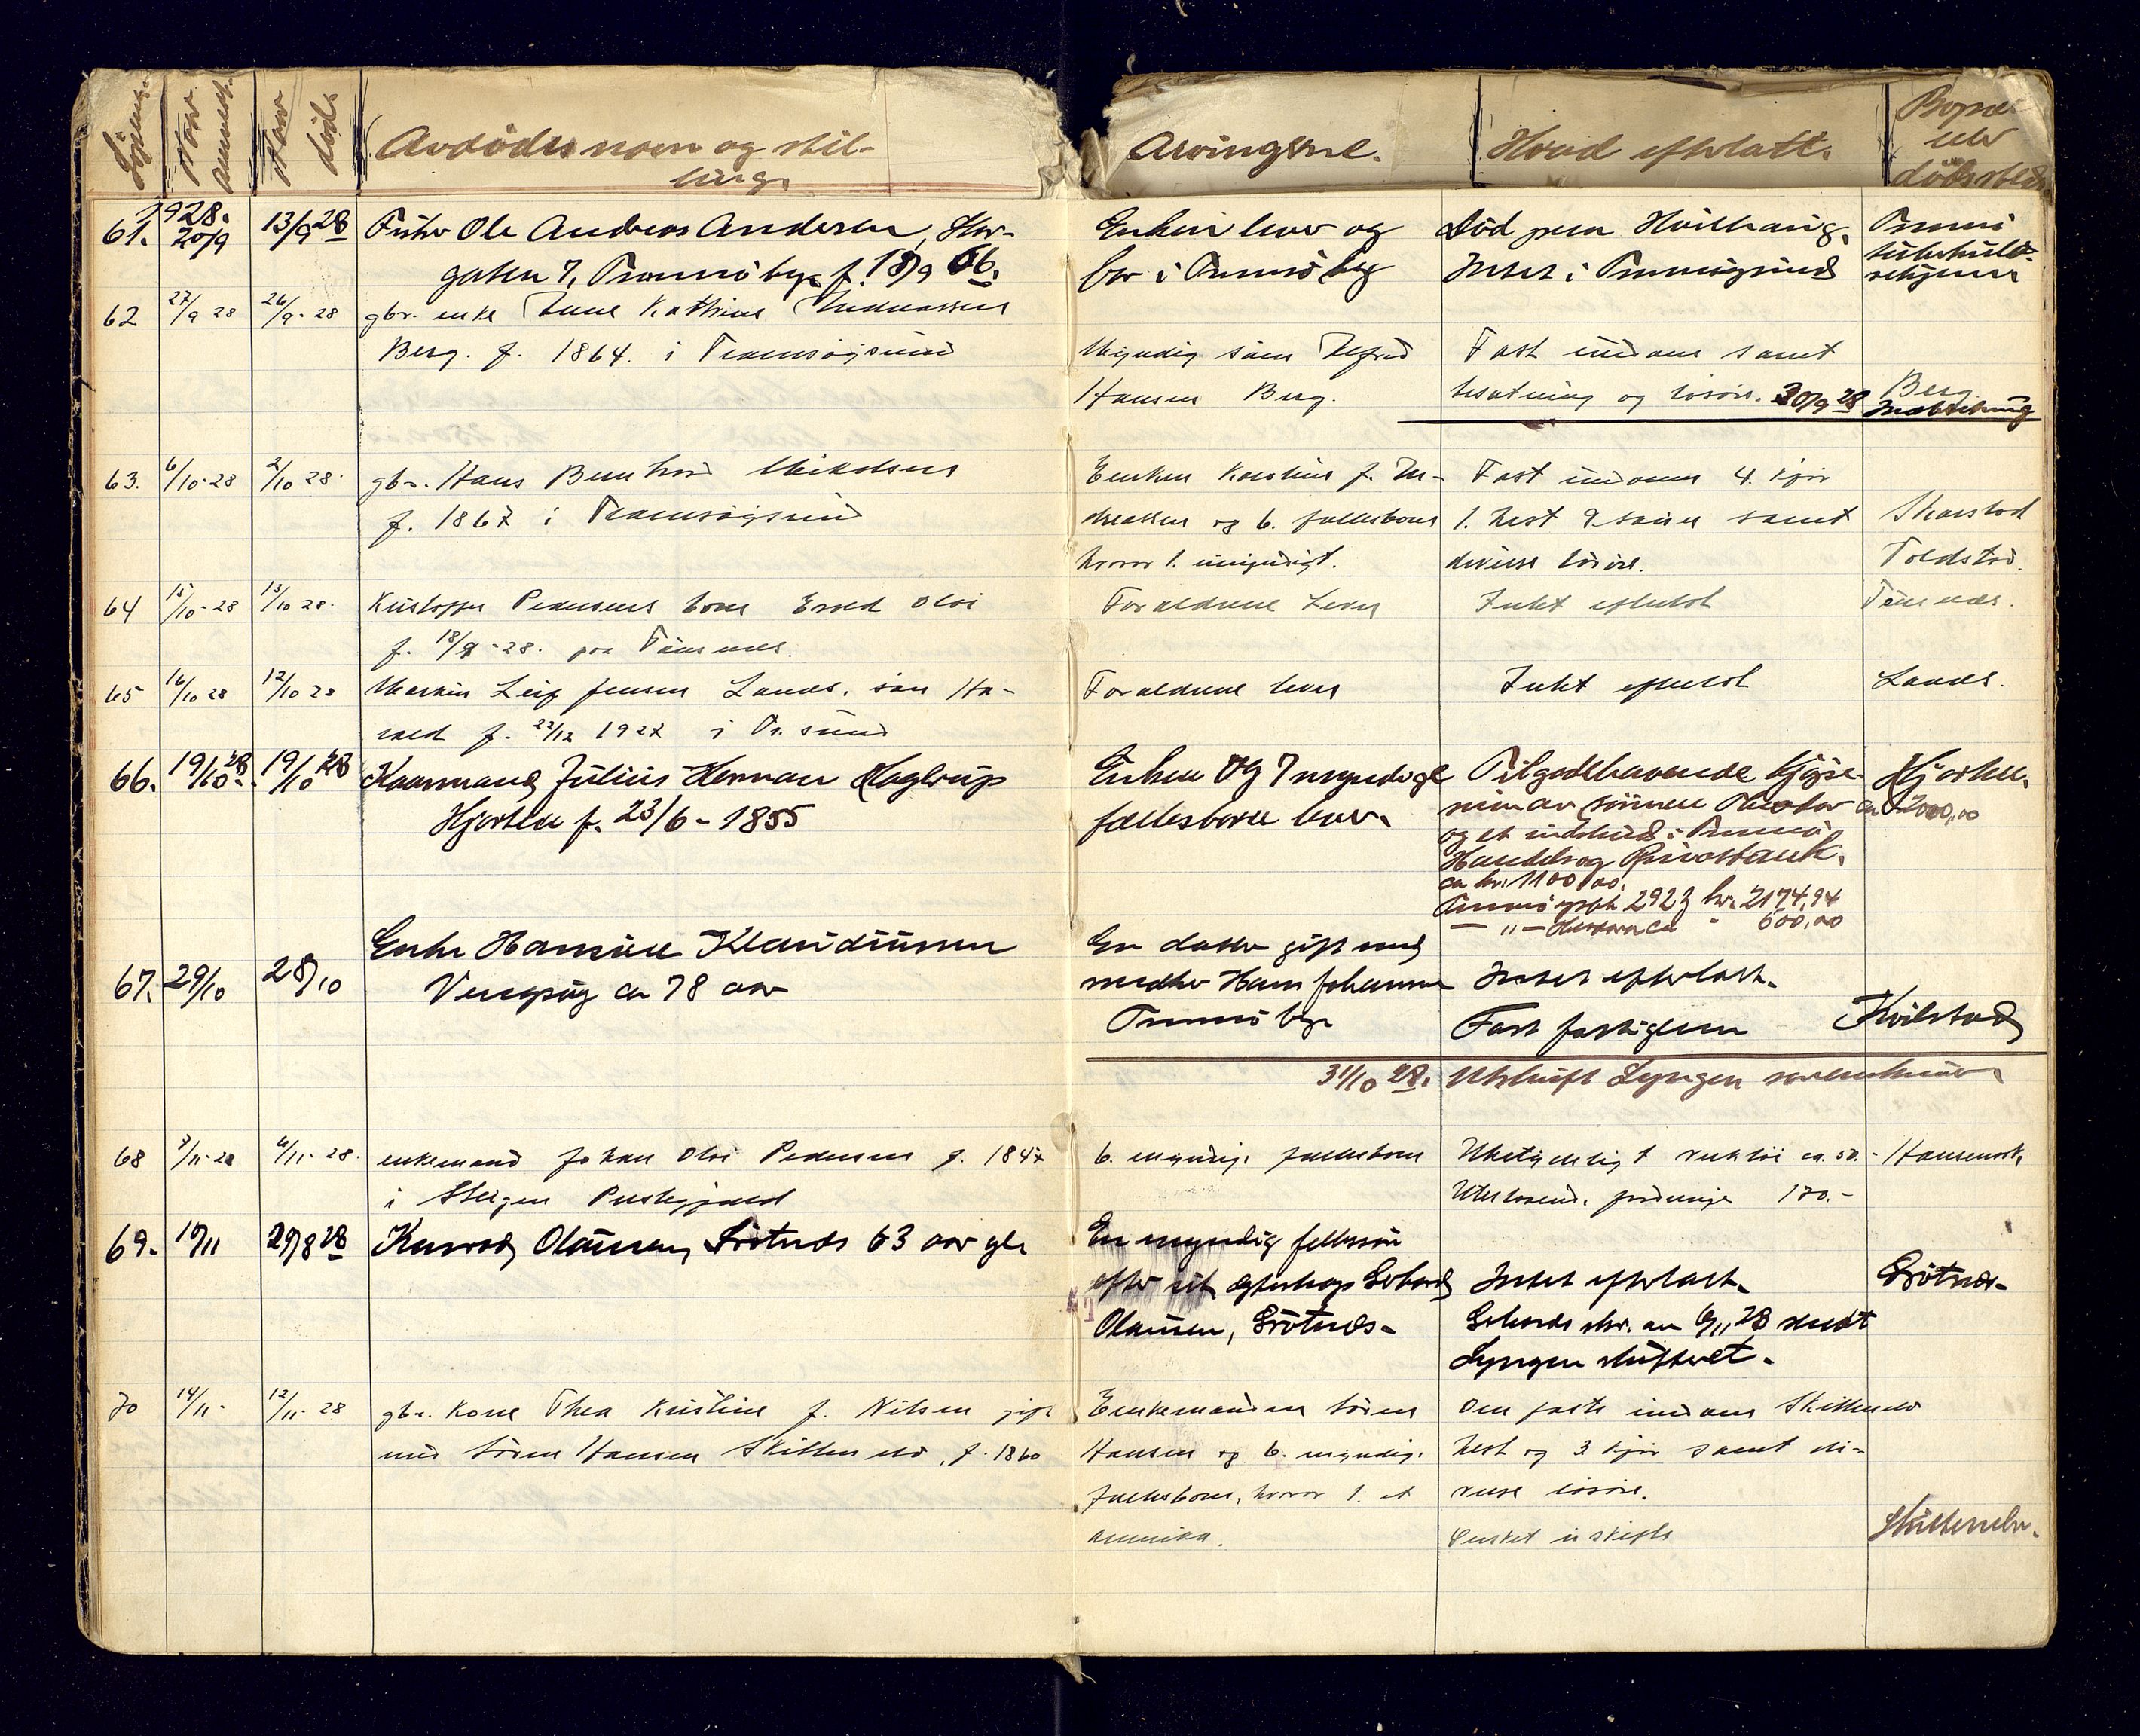 Löpenr.
Naar anmeldt.
Naar död.
Avdödes navn og stil-
ling.
Arvingerne.
Hvad efterlatt.
Bopæl
eller
dödssted.
1928.
61. 20/9 13/9 28 Fisker Ole Andreas Andersen, Hav-
gaten 7, Tromsö by, f. 18/9 66.
Enken lever og
bor i Tromsö by
Död paa
Intet i Tromsöysund
Tromsö
62 27/9 28 26/9-28 gbr. enke Anne Kathrine Andreassen
Berg. f. 1864. i Tromsöysund
Myndig sön Alfred
Hansen Berg.
Fast eiendom samt
besætning og lösöre. 30/9 28
Berg
63. 6/10-28 2/10 28. gbr. Hans Bernhard Mikalsen
f. 1867 i Tromsöysund
Enken Karoline f. An-
dreassen og 6. fællesbarn
hvorav 1. umyndigt.
Fast eiendom 4. kjör
1. hest 9 sauer samt
diverse lösöre.
Skarstad
Toldstad.
64 15/10-28 13/10 28. Kristoffer Pedersens barn Evald Olai
f. 18/9-28. paa Tönsnes.
Forældrene lever
Intet efterlatt
Tönsnes.
65 16/10 28 12/10 28 Martin Leif Jensen Lanes, sön Ha-
rald f. 22/12 1927 i Tr. sund
Forældrene lever
Intet efterlatt
Lanes.
66. 19/10 28. 19/10 28 Kaarmand Julius Herman Hagerup
Hjorten f. 23/6-1855
Enken og 7 myndige
fællesbarn lever.
Tilgodehavende kjöpe-
sum av sönnen Theodor ca 2000,00
og et indskud i Tromsö
Handels og Privatbank.
ca kr. 1100,00.
Tromsö spbk 2923 kr. 2174,94
— " — ca " 600,00
Hjorten.
67. 29/10 28/10 Enke Hansine Klaudiussen
Vengsöy ca 78 aar
En datter gift med
snedker Hans Johansen
Tromsö by.
Intet efterlatt.
Fast fattiglem
Kvilstad
31/10 28. Utskrift Lyngen sorenskriver
68 7/11-28 6/11-28. enkemand Johan Olai Pedersen f. 1847
i Steigen Prestegjæld
6. myndige fællesbarn
Ubetydeligt verktöi ca. 50.-
Utestaaende fordringe 170.-
Hansmark
69. 10/11 29/8 28 Konrad Olaussen, Grötnes 63 aar gl.
En myndig fellessön
efter sit egteskap Gerhard
Olaussen, Grötnes.
Intet efterlatt.
Gerhards skr. av 6/11 28 sendt
Lyngen skifteret.
Grötnes.
70 14/11- 12/11-28 gbr. kone Thea Kristine f. Nilsen gift
med Sören Hansen Skittenelv, f. 1860
Enkemanden Sören
Hansen og 6. myndige
fællesbarn, hvorav 1. i
Amerika.
Den faste eiendom Skittenelv
hest og 3 kjör samt di-
verse lösöre.
Önsket ei skifte
Skittenelv.